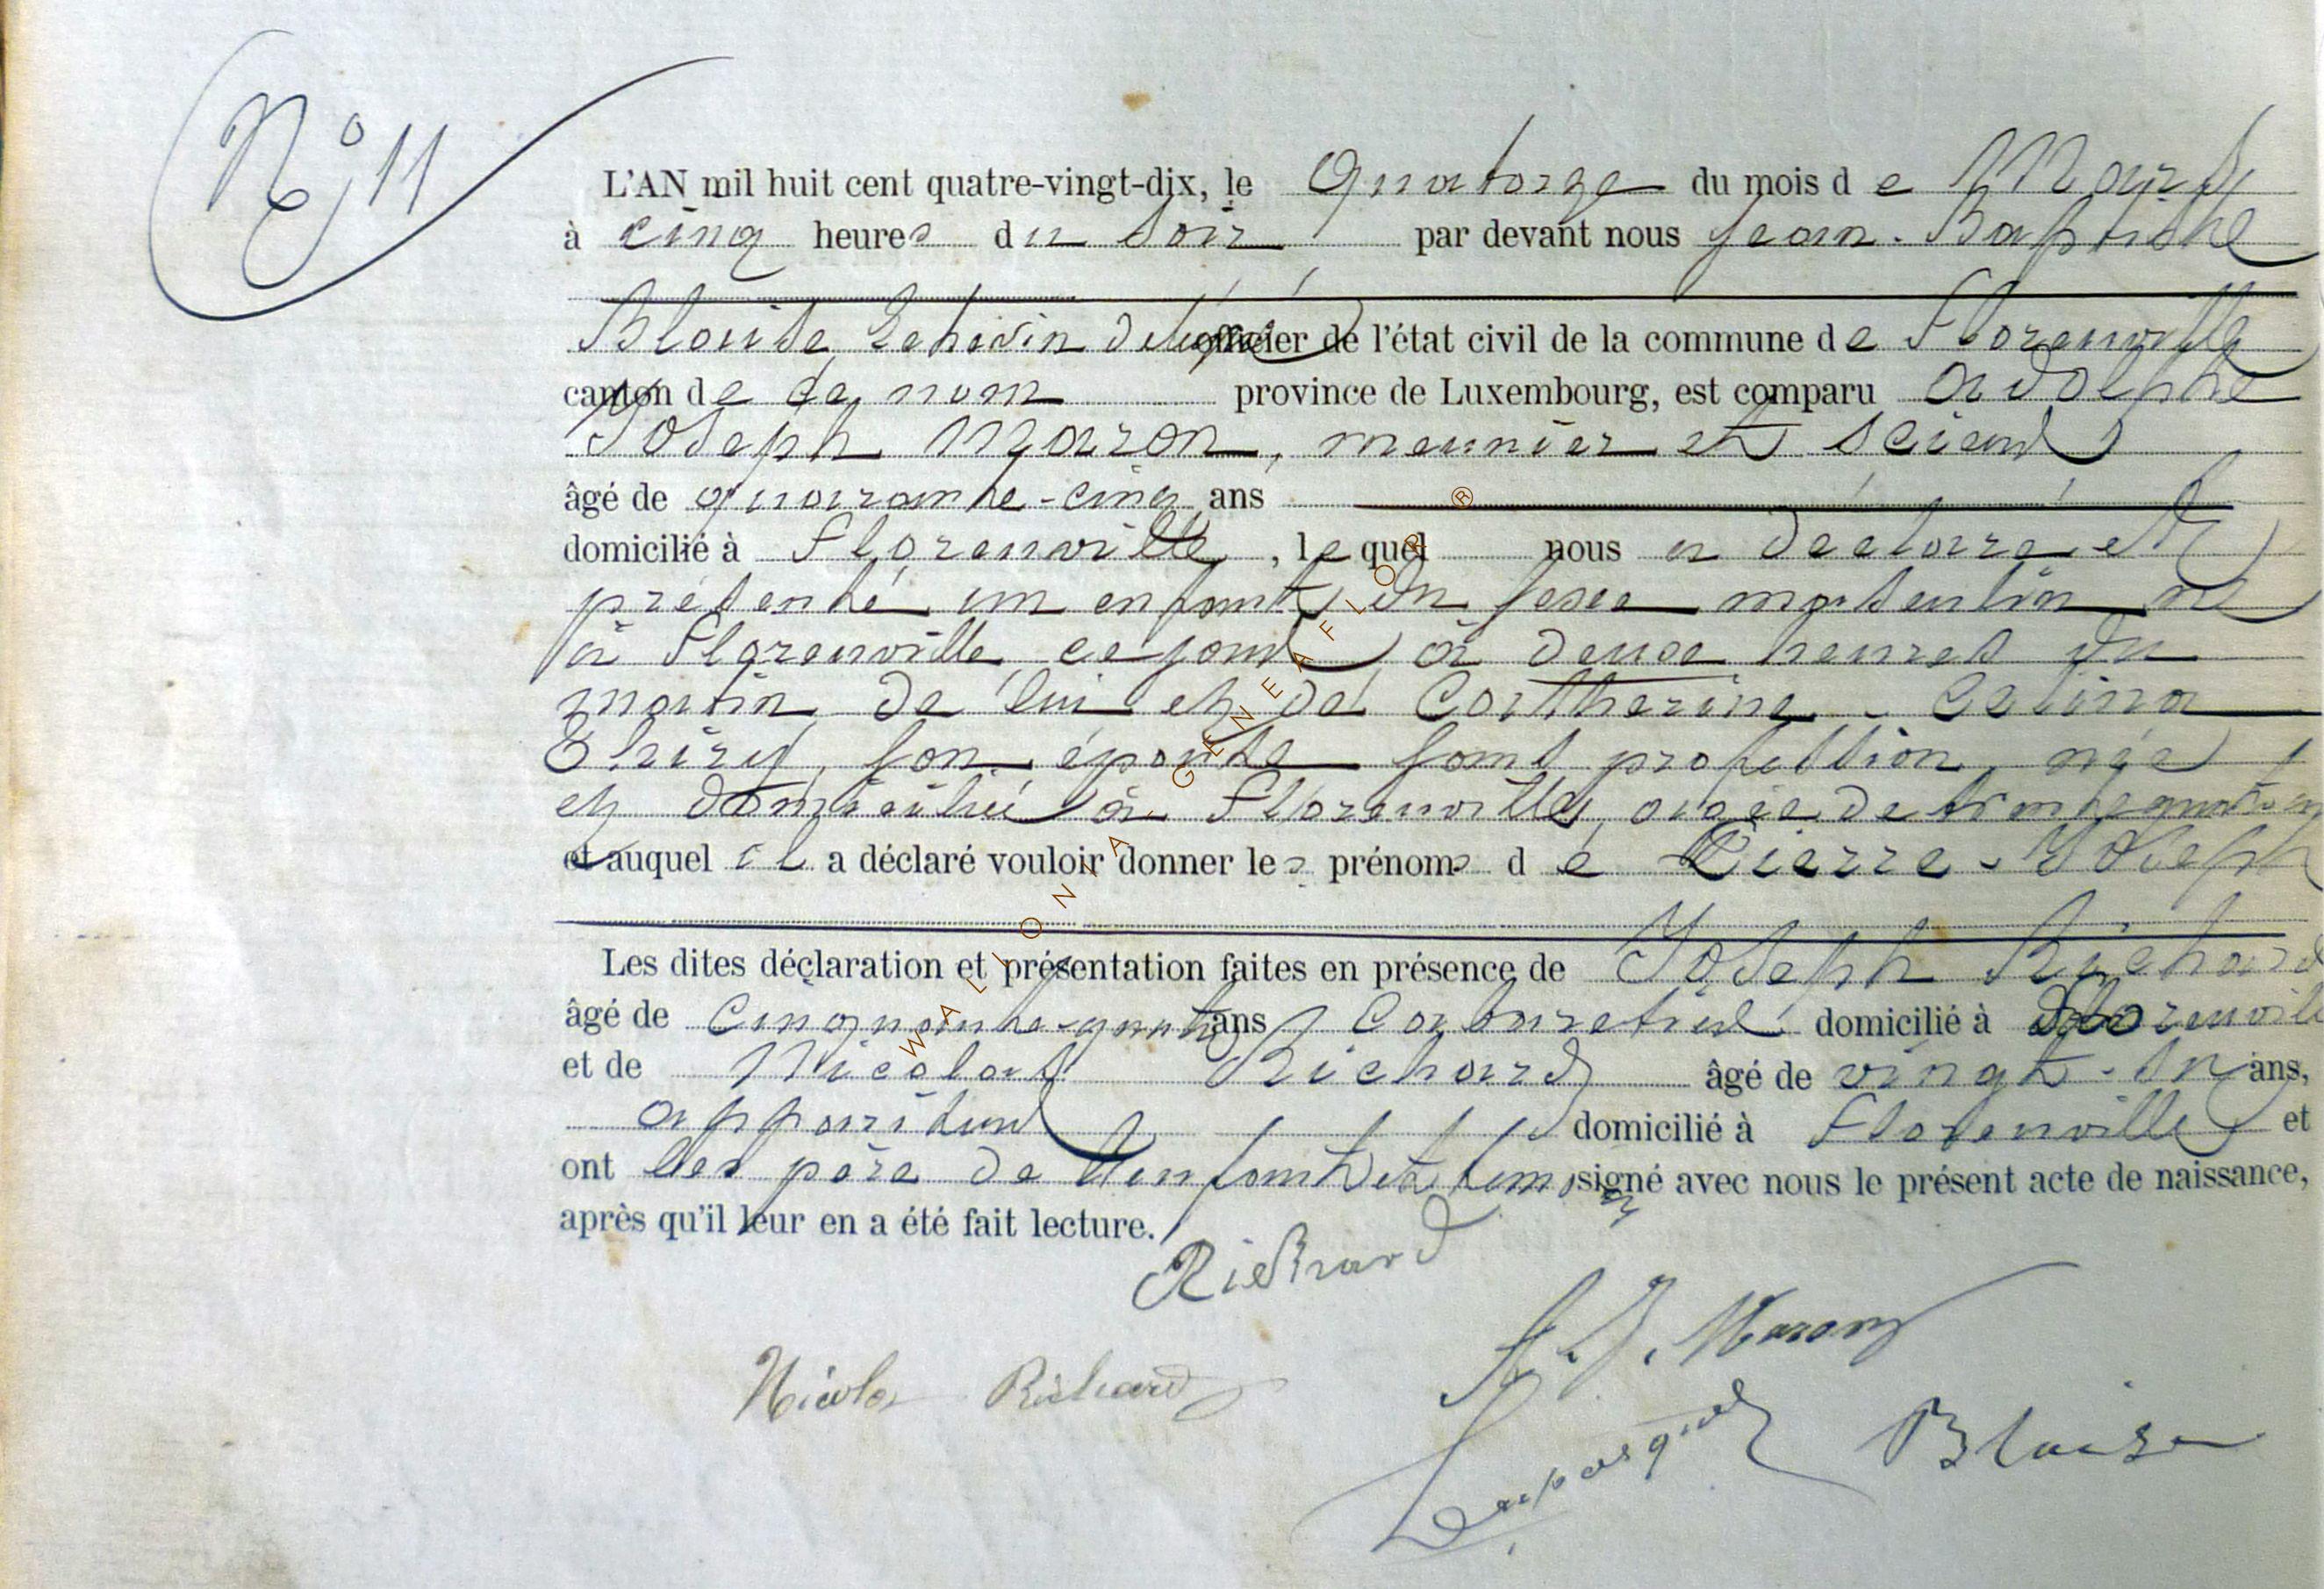 N° 11
L'AN mil huit cent quatre-vingt-dix, le Quatorze du mois d e Mars
à cinq heures du soir par devant nous Jean-Baptiste
Blaise, Echevin délégué officier de l'état civil de la commune de Florenville
canton de ce nom province de Luxembourg, est comparu Adolphe
Joseph Maron, meunier et scieur
âgé de quarante-cinq ans
domicilié à Florenville, lequel nous a déclaré et
présenté un enfant du sexe masculin né
à Florenville ce jour à deux heures du
matin de lui et de Catherine-Celina
Thiry, son épouse sans profession, née
et domiciliée à Florenville, âgée de trente quatre ans
et auquel il a déclaré vouloir donner les prénoms de Pierre-Joseph
Les dites déclaration et présentation faites en présence de Joseph Richard
âgé de cinquante-quatre ans Cabaretier domicilié à Florenville
et de Nicolas Richard âgé de vingt-six ans,
appariteur domicilié à Florenville et
ont les père de l'enfant et témoins signé avec nous le présent acte de naissance,
après qu'il leur en a été fait lecture.
Richard
A. J. Maron
Nicolas Richard
Blaise
WALLONIA-GENEAFLOR ®